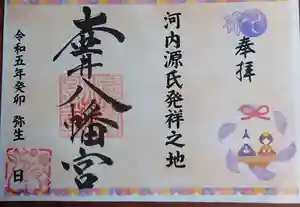 奉拝
河内源氏発祥之地
壷井八幡宮
令和五年癸卯 弥生 日